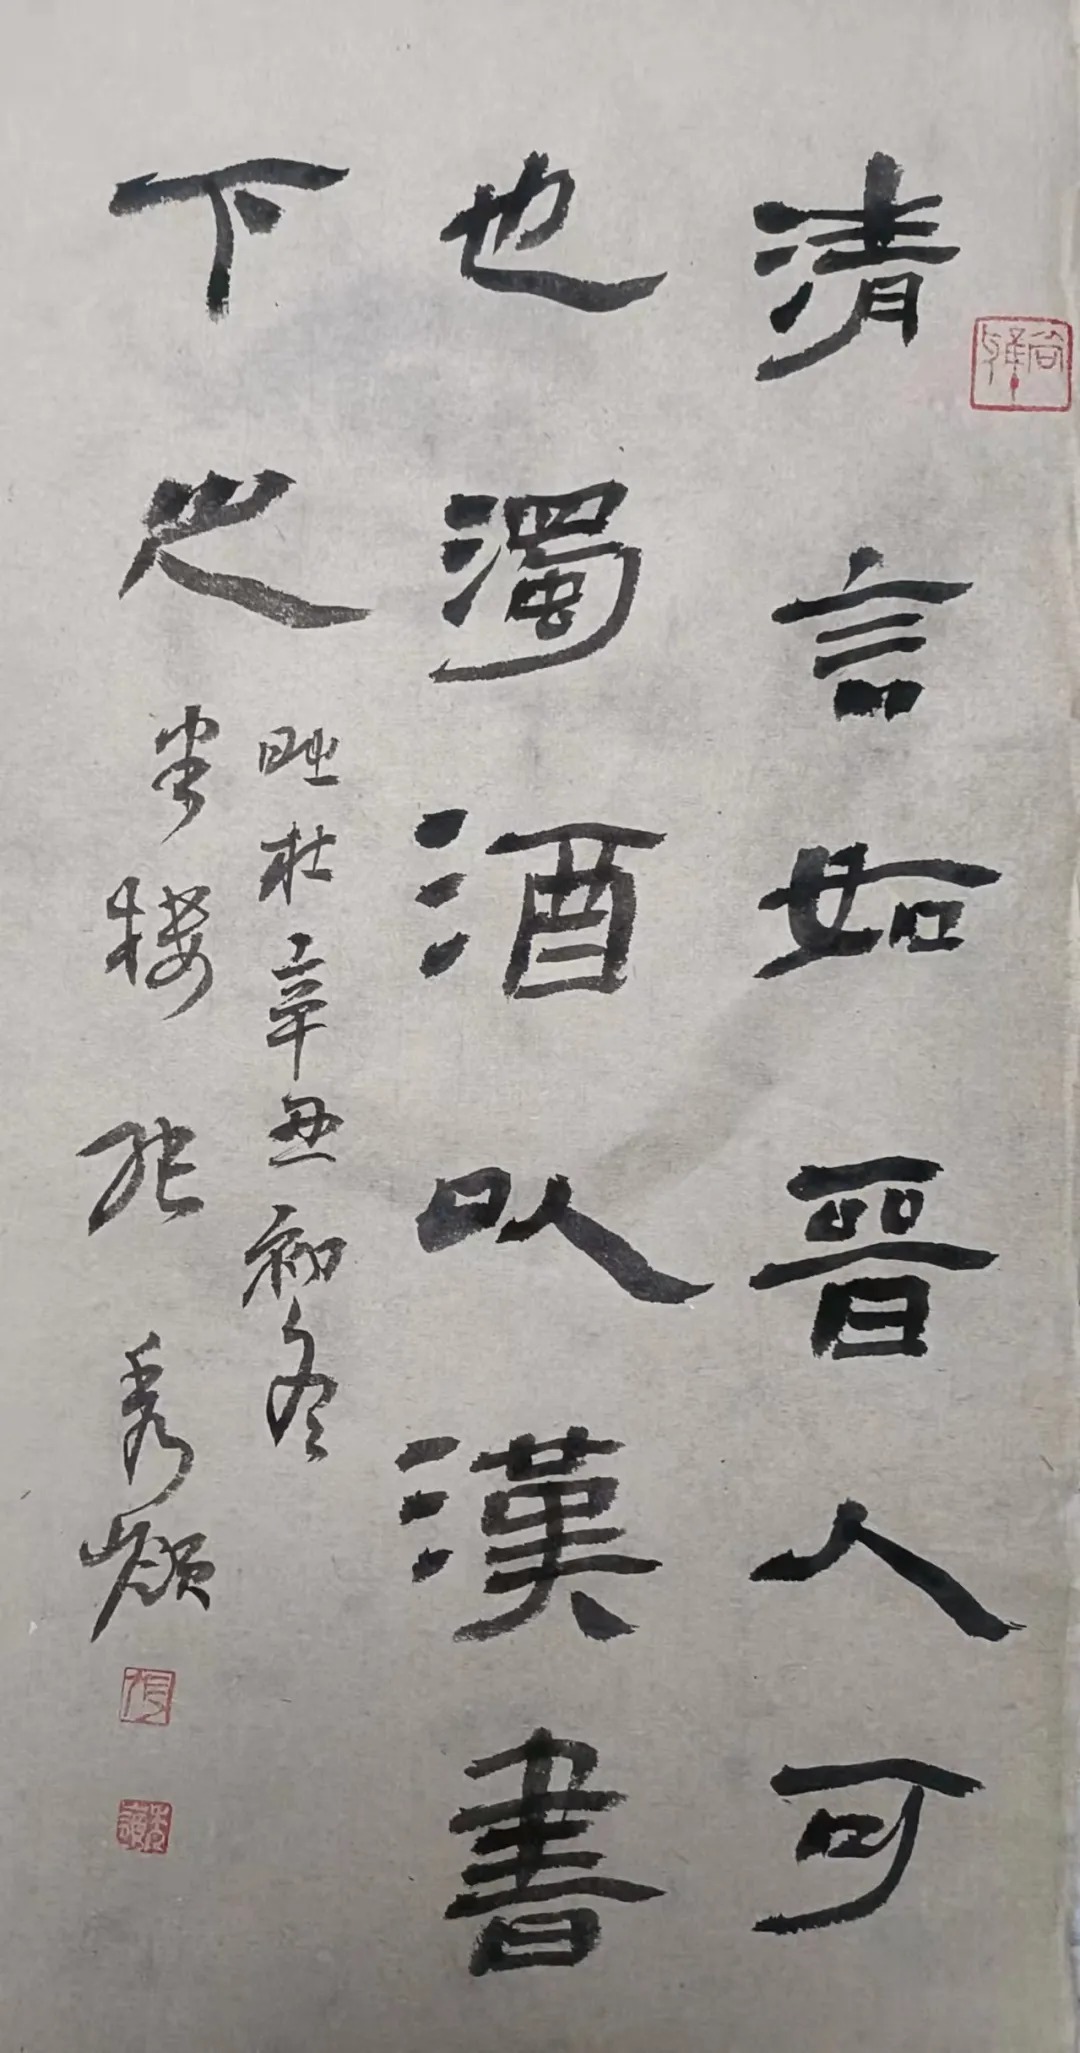 清言如晉人可
也濁酒以漢書
下之
辛丑初冬
張秀嶺